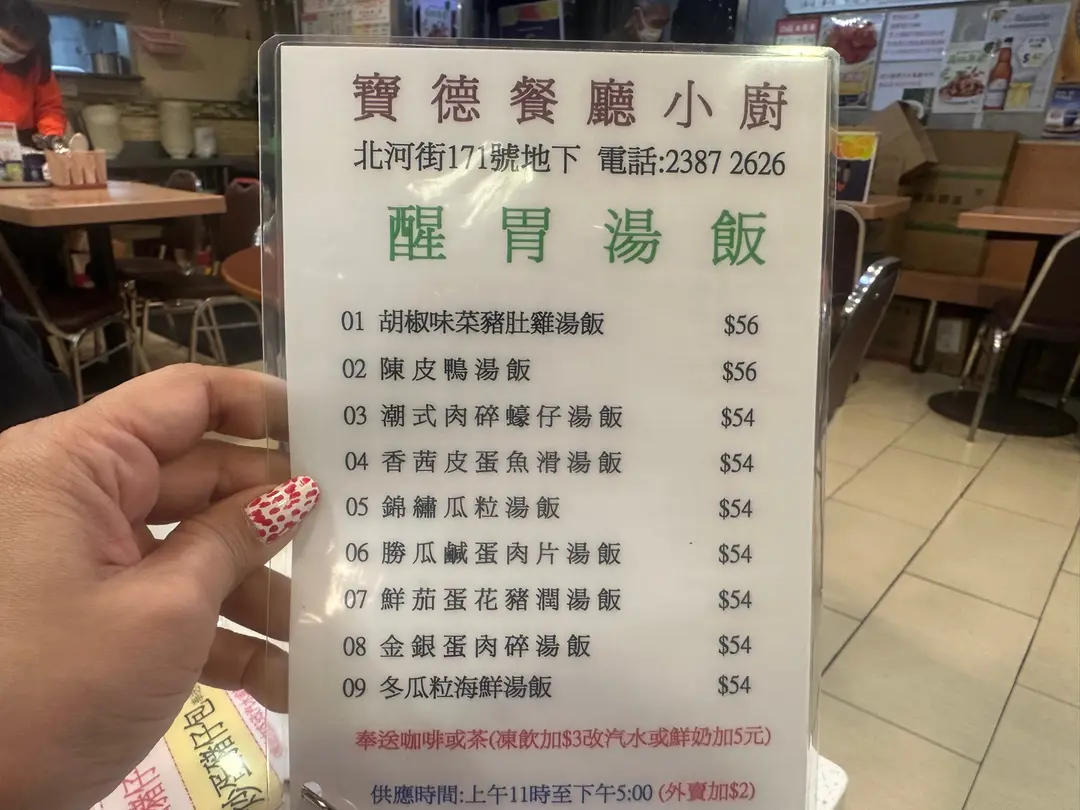 寶德餐廳小廚
北河街171號地下 電話:2387 2626
醒胃湯飯
01 胡椒味菜豬肚雞湯飯 $56
02 陳皮鴨湯飯 $56
03 潮式肉碎蠔仔湯飯 $54
04 香茜皮蛋魚滑湯飯 $54
05 錦繡瓜粒湯飯 $54
06 勝瓜鹹蛋肉片湯飯 $54
07 鮮茄蛋花豬潤湯飯 $54
08 金銀蛋肉碎湯飯 $54
09 冬瓜粒海鮮湯飯 $54
奉送咖啡或茶(凍飲加$3改汽水或鮮奶加5元)
供應時間:上午11時至下午5:00 (外賣加$2)